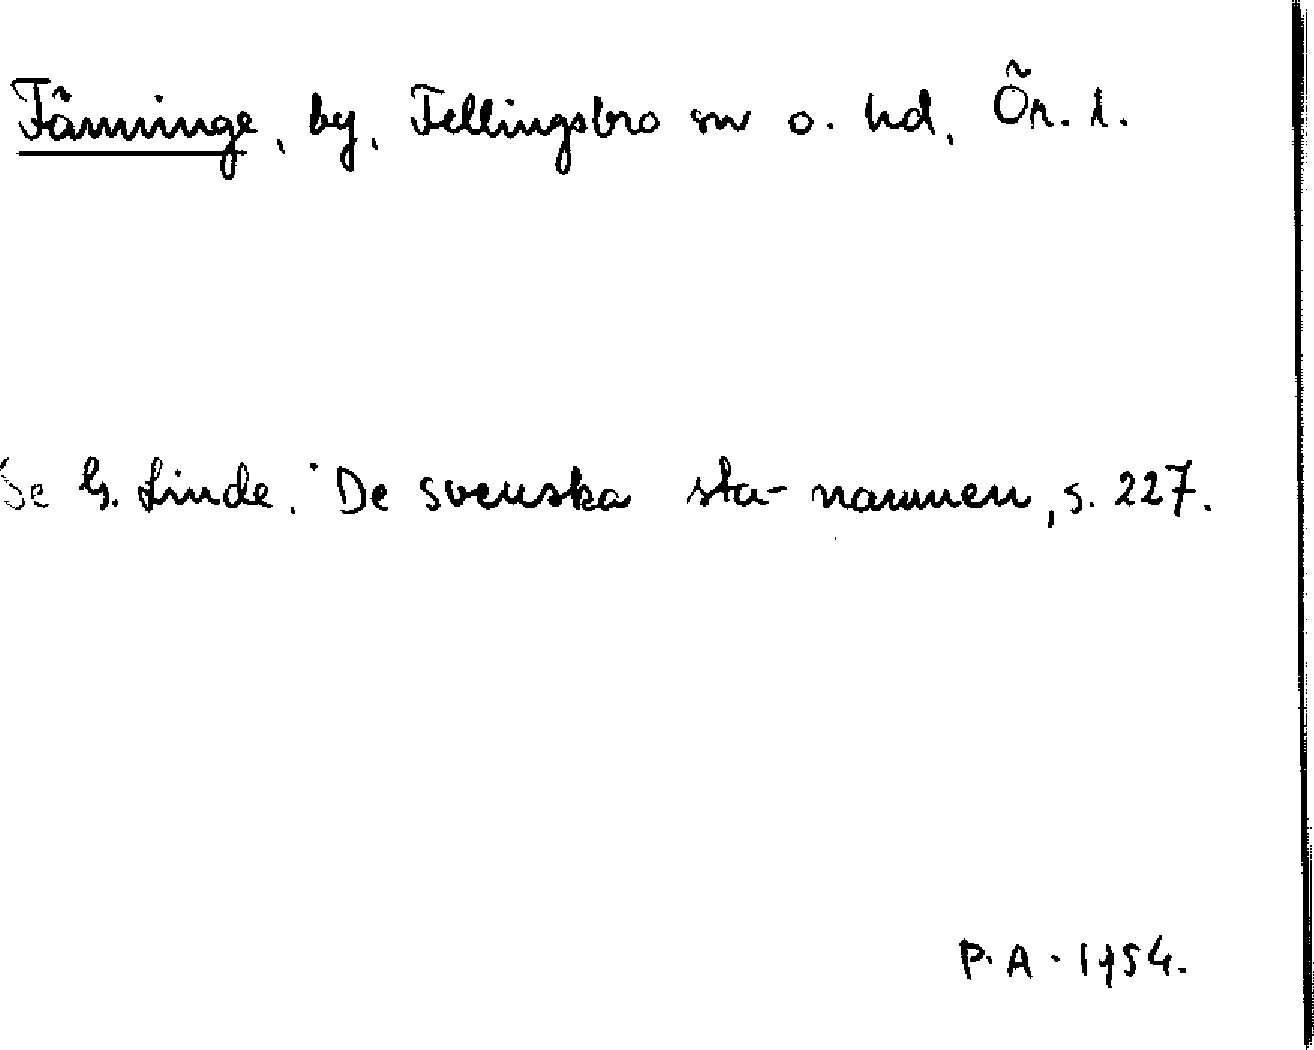 Fänninge, by, Fellingsbro sn o. hd, Ör. l.
Se G. Linde. De svenska sta-namnen, s. 227.
P. A. 1954.